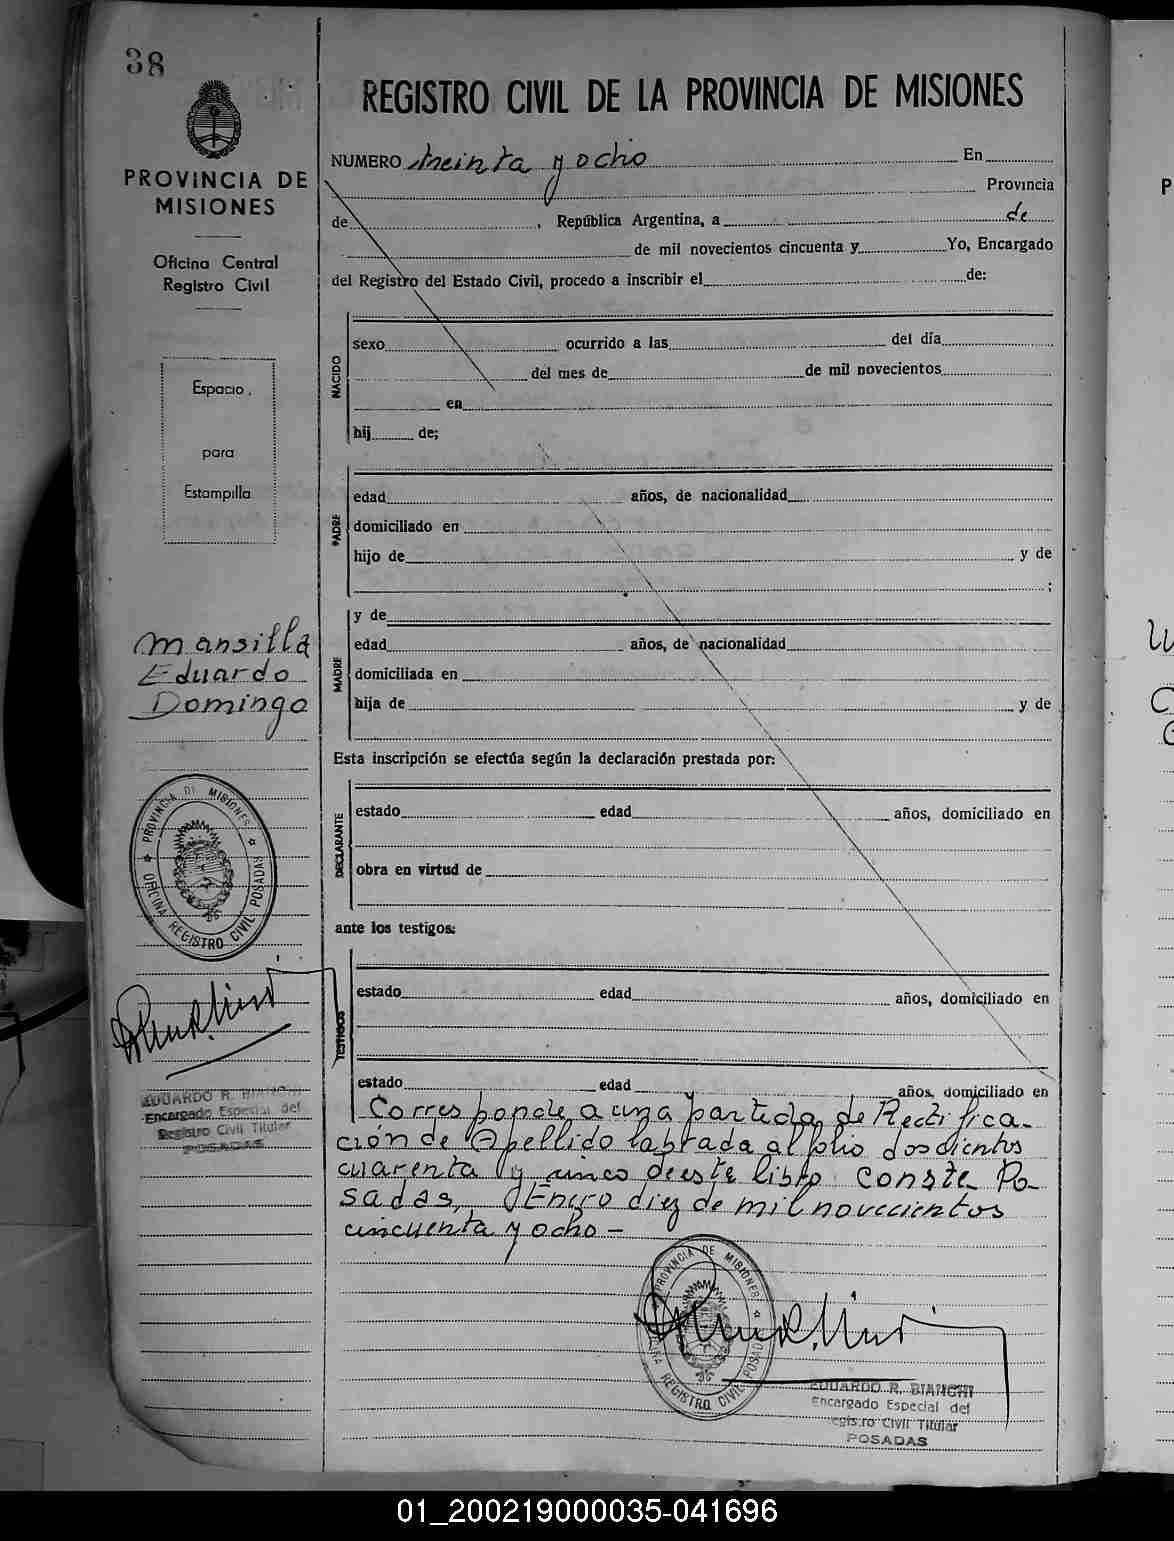 38
REGISTRO CIVIL DE LA PROVINCIA DE MISIONES
PROVINCIA DE
MISIONES
Oficina Central
Registro Civil
Espacio
para
Estampilla
Mansilla
Eduardo
Domingo
PROVINCIA DE MISIONES
OFICINA REGISTRO CIVIL POSADAS
EDUARDO R. BIANCHI
Encargado Especial del
Registro Civil Titular
POSADAS
NUMERO treinta y ocho En
Provincia
de , República Argentina, a de
de mil novecientos cincuenta y Yo, Encargado
del Registro del Estado Civil, procedo a inscribir el de:
NACIDO
sexo ocurrido a las del día
del mes de de mil novecientos
en
hij de;
PADRE
edad años, de nacionalidad
domiciliado en
hijo de y de
;
MADRE
y de
edad años, de nacionalidad
domiciliada en
hija de y de
Esta inscripción se efectúa según la declaración prestada por:
DECLARANTE
estado edad años, domiciliado en
obra en virtud de
ante los testigos:
TESTIGOS
estado edad años, domiciliado en
estado edad años, domiciliado en
Corresponde a una partida de Rectifica-
ción de Apellido labrada al folio doscientos
cuarenta y cinco de este libro. Conste. Po-
sadas, Enero diez de mil novecientos
cincuenta y ocho -
PROVINCIA DE MISIONES
OFICINA REGISTRO CIVIL POSADAS
EDUARDO R. BIANCHI
Encargado Especial del
Registro Civil Titular
POSADAS
P
01_200219000035-041696